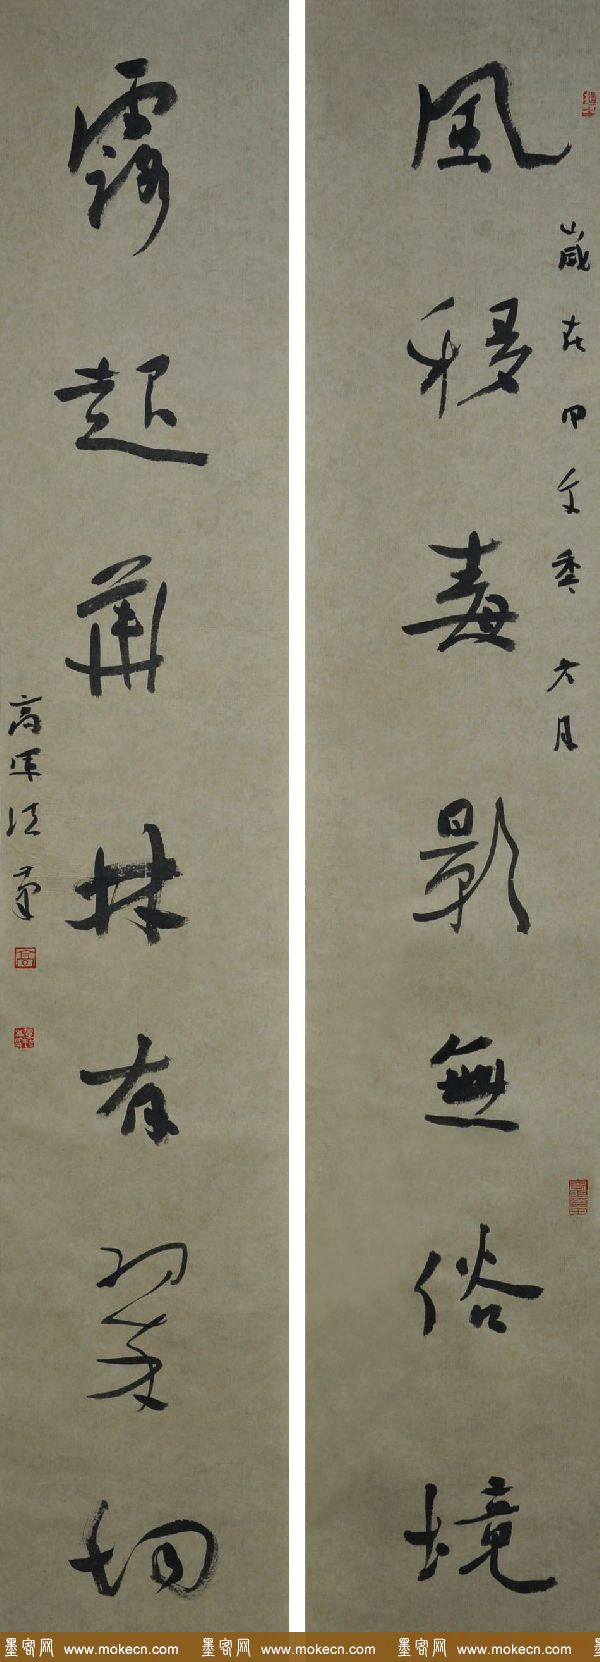 風移影無俗境
歲在甲午秊六月
露起華林有翠
高軍法
墨客网 www.mokecn.com 墨客网 www.mokecn.com 墨客网 www.mokecn.com 墨客